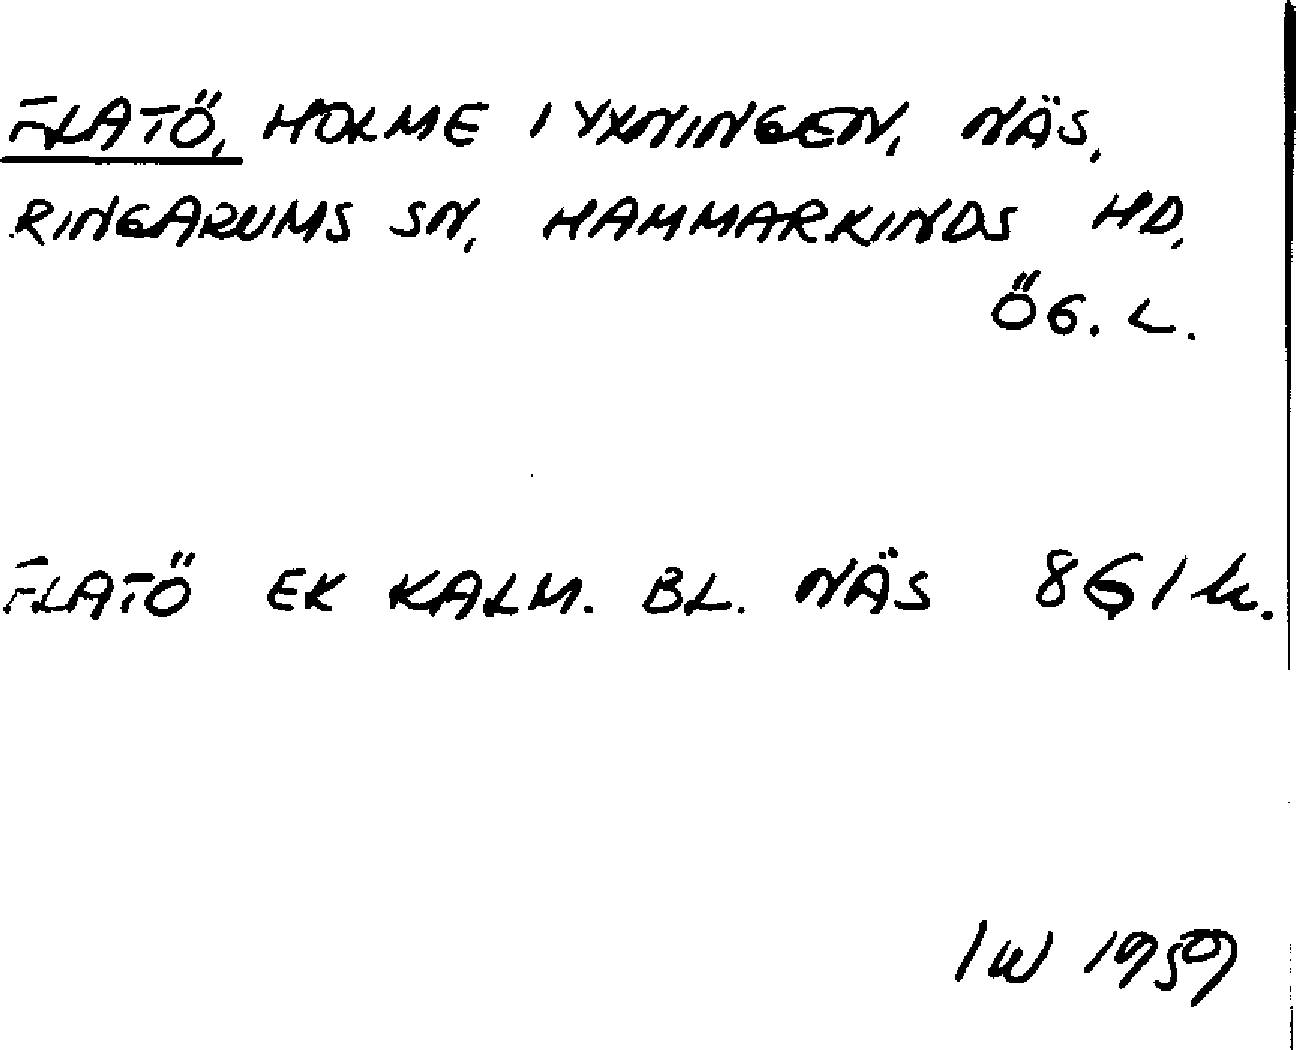 FLATÖ, HOLME I YXNINGEN, NÄS,
RINGARUMS SN, HAMMARKINDS HD,
ÖG. L.
FLATÖ EK KALM. BL. NÄS 861 k.
IW 1959